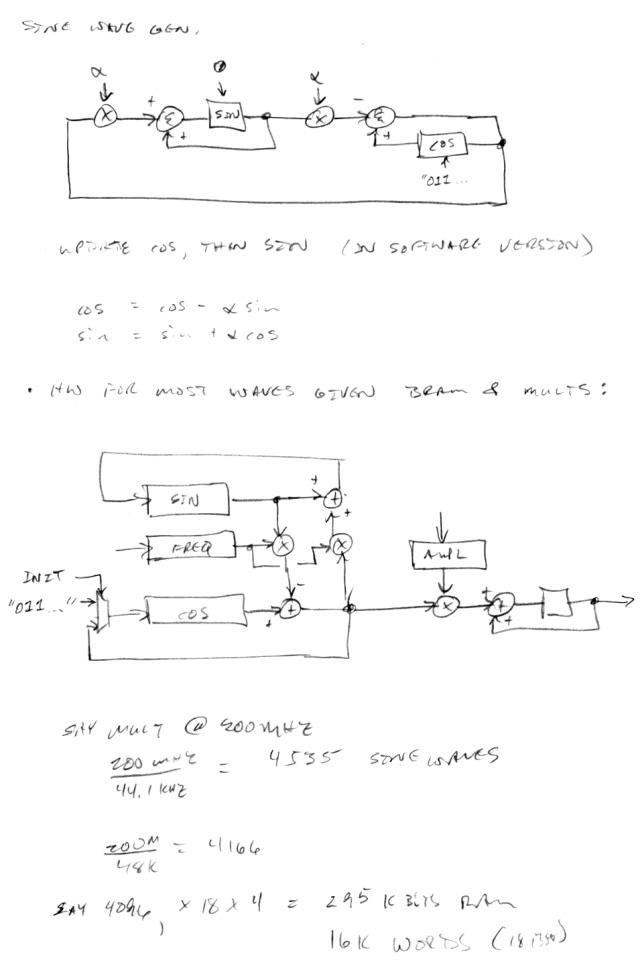 SINE WAVE GEN.
α 0 α
X + Σ SIN X - Σ
+ + COS
"011...
UPDATE COS, THEN SIN (IN SOFTWARE VERSION)
cos = cos - α sin
sin = sin + α cos
• HW FOR MOST WAVES GIVEN BRAM & MULTS:
SIN + +
+
FREQ X X AMPL
INIT -
"011..." COS + + X + +
+
SAY MULT @ 200 MHZ
200 MHZ / 44.1 KHZ = 4535 SINE WAVES
200M / 48K = 4166
SAY 4096, X 18 X 4 = 295 K BITS RAM
16K WORDS (18 BIT)